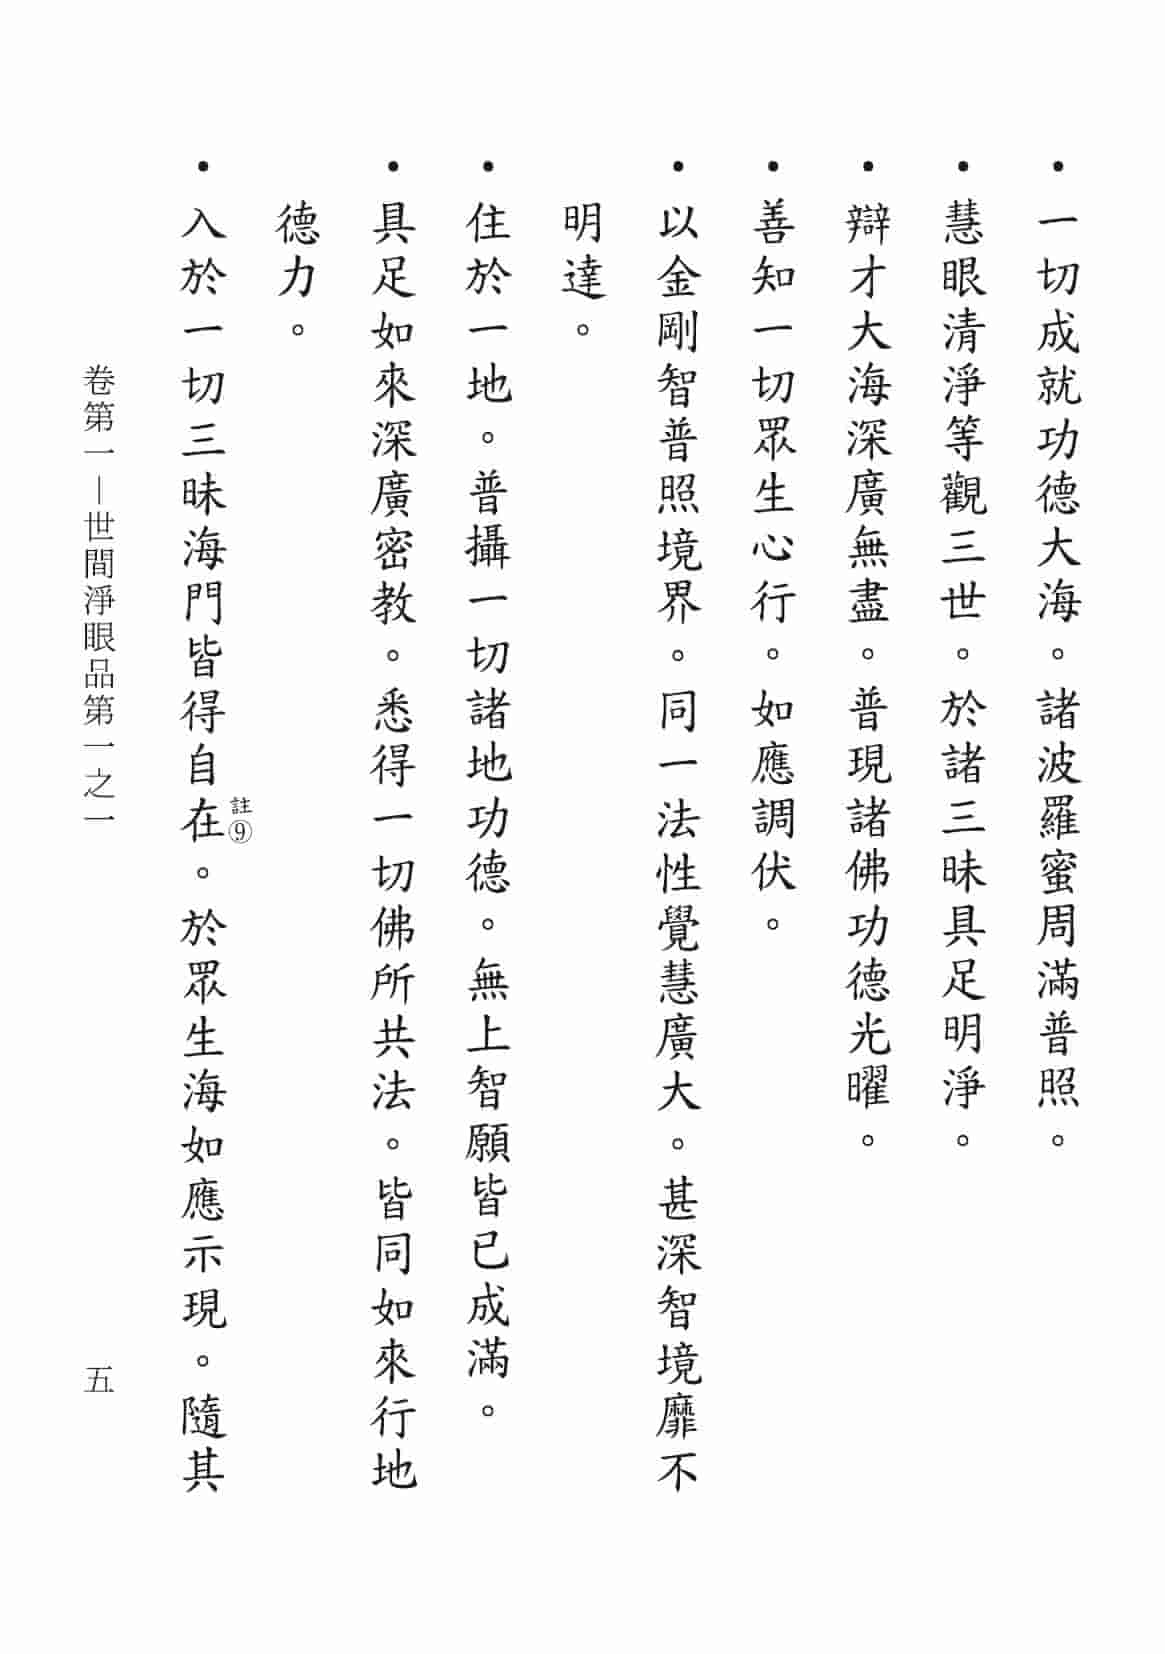 •一切成就功德大海。諸波羅蜜周滿普照。
•慧眼清淨等觀三世。於諸三昧具足明淨。
•辯才大海深廣無盡。普現諸佛功德光曜。
•善知一切眾生心行。如應調伏。
•以金剛智普照境界。同一法性覺慧廣大。甚深智境靡不
明達。
•住於一地。普攝一切諸地功德。無上智願皆已成滿。
•具足如來深廣密教。悉得一切佛所共法。皆同如來行地
德力。
•入於一切三昧海門皆得自在註⑨。於眾生海如應示現。隨其
卷第一—世間淨眼品第一之一
五